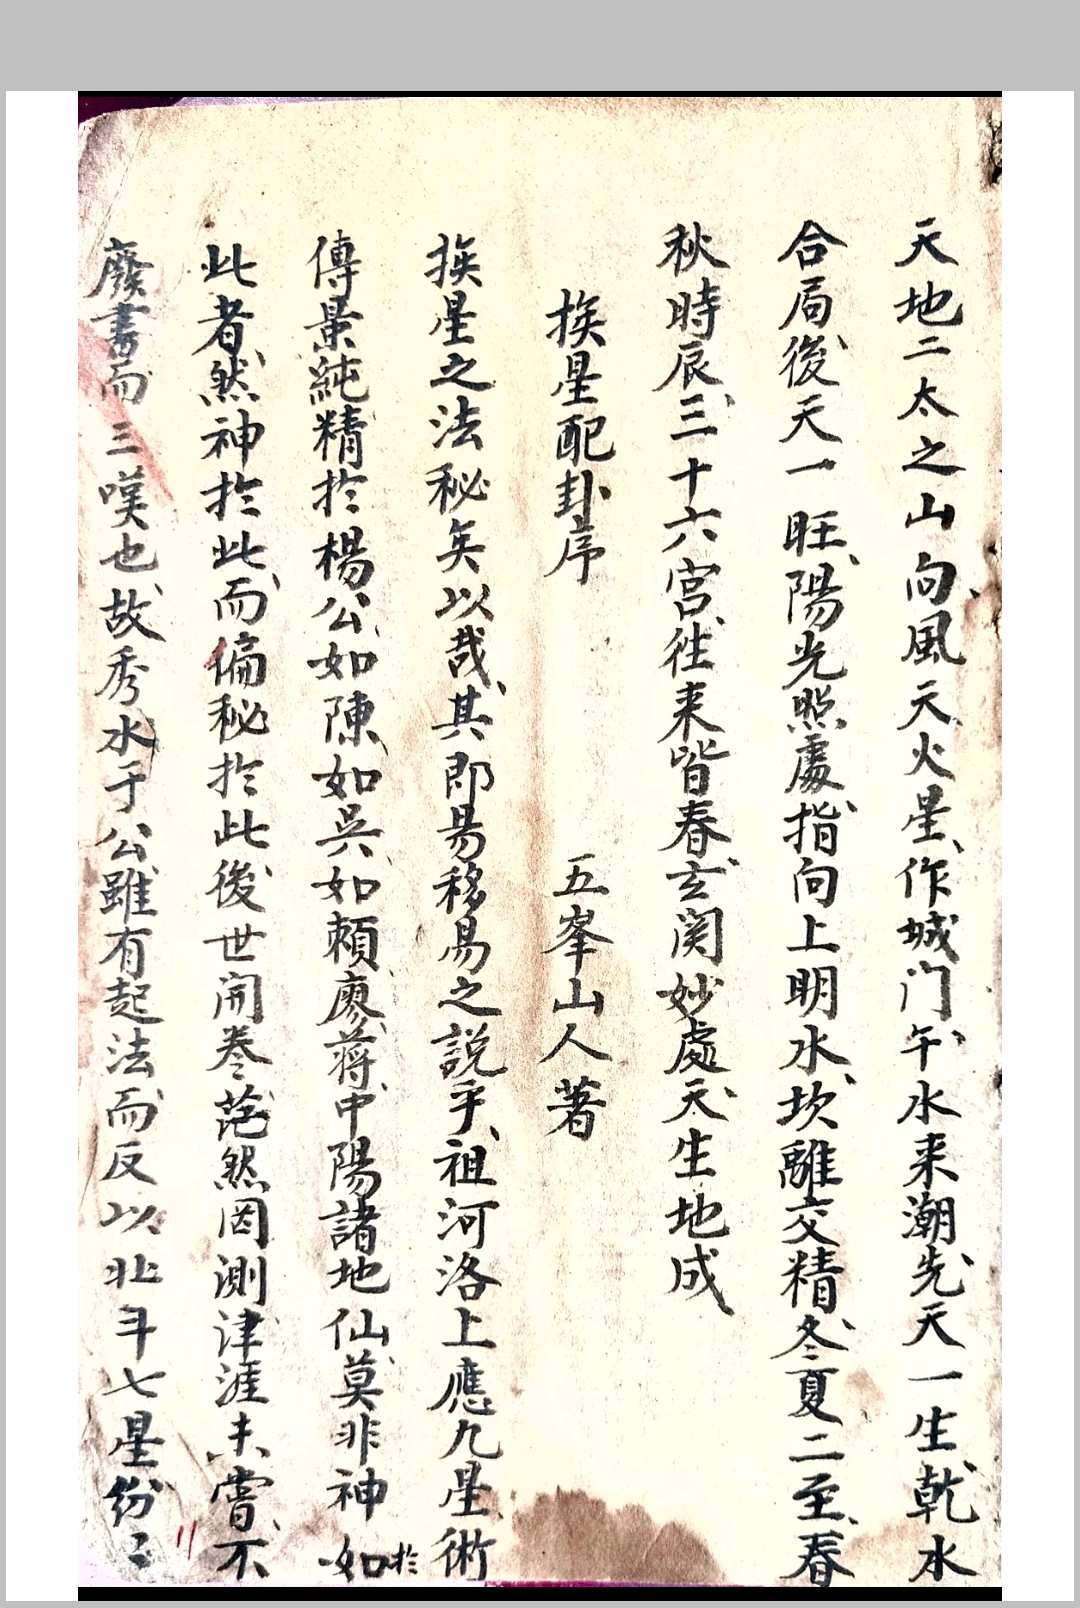 天地二太之山向、風天火星、作城门午、水来潮、先天一生乾、水
合局、後天一旺、陽光照處、指向上明水、坎離交精、冬夏二至、春
秋時辰、三十六宮、徃来皆春、玄関妙處、天生地成、
挨星配卦序　五峯山人著
挨星之法秘矣以哉、其即昜移易之說乎、祖河洛上應九星、術
傳景純精扵楊公、如陳、如吳、如頼、廖、蒋、中陽諸地仙、莫非神如扵
此者、然神扵此、而偏秘扵此、後世開卷茫然罔測津涯、未嘗、不
廢書而三嘆也、故秀水于公、雖有起法、而反以北斗七星份〻